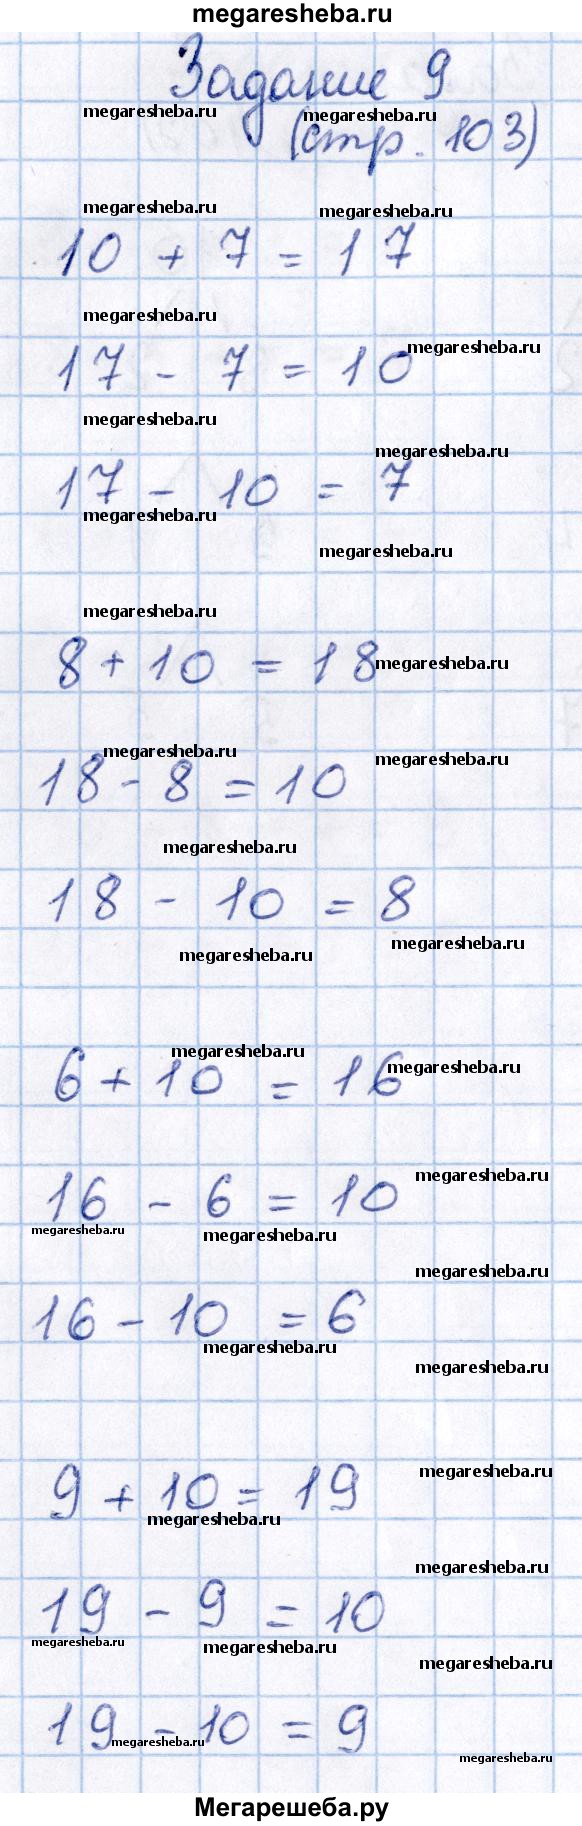 megaresheba.ru
Задание 9
megaresheba.ru megaresheba.ru
(стр. 103)
megaresheba.ru megaresheba.ru
10 + 7 = 17
megaresheba.ru
megaresheba.ru
17 - 7 = 10
megaresheba.ru
megaresheba.ru
17 - 10 = 7
megaresheba.ru
megaresheba.ru
megaresheba.ru
8 + 10 = 18
megaresheba.ru
megaresheba.ru
megaresheba.ru
18 - 8 = 10
megaresheba.ru
18 - 10 = 8
megaresheba.ru
megaresheba.ru
megaresheba.ru
megaresheba.ru
6 + 10 = 16
megaresheba.ru
16 - 6 = 10
megaresheba.ru
megaresheba.ru
megaresheba.ru
16 - 10 = 6
megaresheba.ru
megaresheba.ru
megaresheba.ru
9 + 10 = 19
megaresheba.ru
megaresheba.ru
19 - 9 = 10
megaresheba.ru
megaresheba.ru
megaresheba.ru
19 - 10 = 9
megaresheba.ru
megaresheba.ru
Мегарешеба.ру